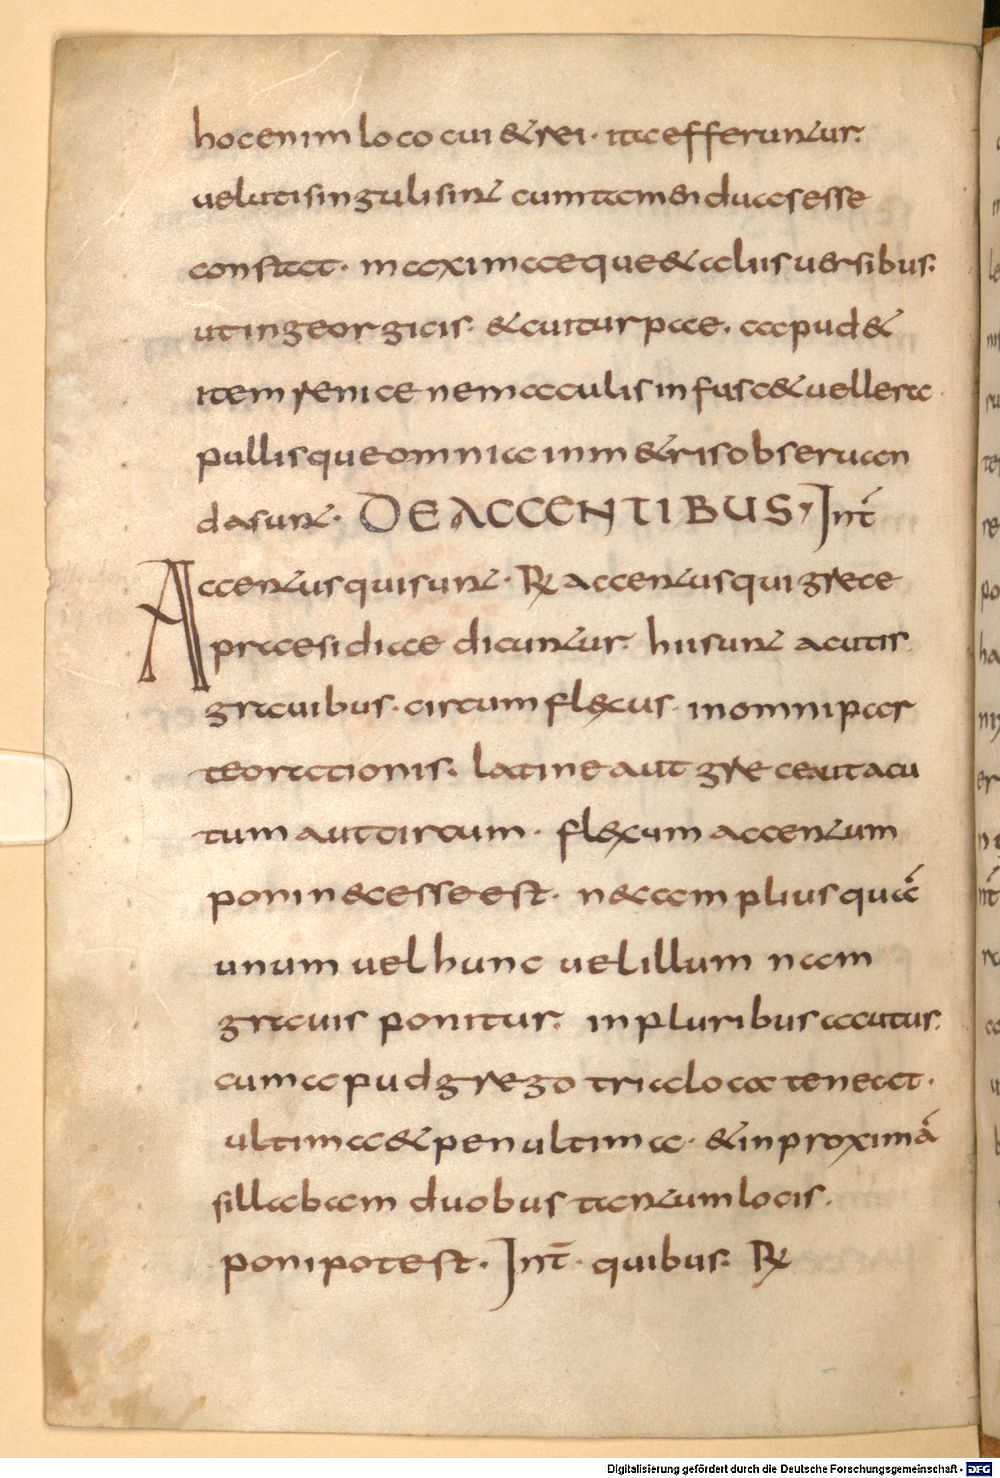 hocenim loco cui & rei · ita efferuntur.
uelutisingulisint cumtamen duasesse
constat · maximaeque & alus uersibus.
utingeorgicis · & cuiturpae · caput &
item renicenemaculis infusc & uellera ·
pullisqueomnia inm & risobseruan
dasunt · DE ACCENTIBUS, Int̄
ccentusquisunt · Rx accentusquigrece
Apraesidiae dicuntur · hiisunt acutis
grauibus · circumflecus · inomnipar
teorationis · latine aut grece autacu
tum autcircum · flexum accentum
poninecesseest · nec amplius quā
unum uel hunc uel illum nam
grauis ponitur · inpluribus acutus.
cum apud grego trialoca teneat ·
ultima & penultima · & inproximā
sillabam duobus tantumlocis ·
ponipotest · Int̄ · quibus · Rx
Digitalisierung gefördert durch die Deutsche Forschungsgemeinschaft - DFG